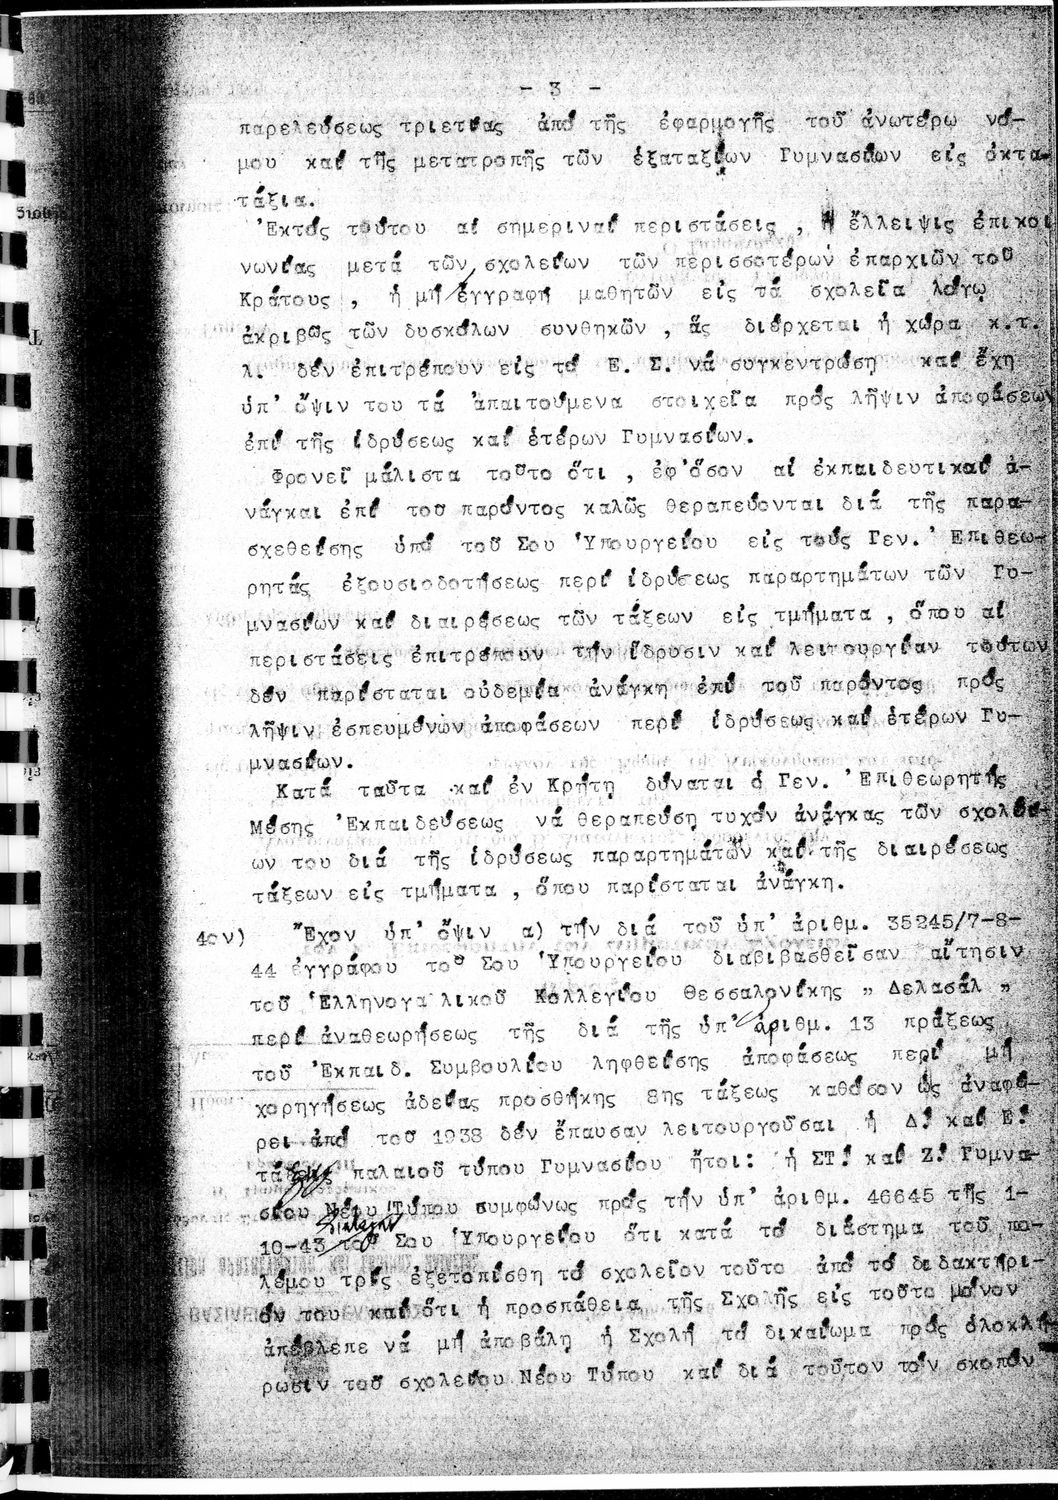 - 3 -
παρελεύσεως τριετίας ἀπό τῆς ἐφαρμογῆς τοῦ ἀνωτέρω νό-
μου καί τῆς μετατροπῆς τῶν ἑξαταξίων Γυμνασίων εἰς ὀκτα-
τάξια.
Ἐκτός τούτου αἱ σημεριναί περιστάσεις , ἡ ἔλλειψις ἐπικοι
νωνίας μετά τῶν σχολείων τῶν περισσοτέρων ἐπαρχιῶν τοῦ
Κράτους , ἡ μή ἐγγραφή μαθητῶν εἰς τά σχολεῖα λόγῳ
ἀκριβῶς τῶν δυσκόλων συνθηκῶν , ἅς διέρχεται ἡ χώρα κ.τ.
λ. δέν ἐπιτρέπουν εἰς τό Ε. Σ. νά συγκεντρώσῃ καί ἔχῃ
ὑπ' ὄψιν του τά ἀπαιτούμενα στοιχεῖα πρός λῆψιν ἀποφάσεων
ἐπί τῆς ἱδρύσεως καί ἑτέρων Γυμνασίων.
Φρονεῖ μάλιστα τοῦτο ὅτι , ἐφ'ὅσον αἱ ἐκπαιδευτικαί ἀ-
νάγκαι ἐπί του παρόντος καλῶς θεραπεύονται διά τῆς παρα-
σχεθείσης ὑπό τοῦ Σου Ὑπουργείου εἰς τούς Γεν. Ἐπιθεω-
ρητάς ἐξουσιοδοτήσεως περί ἱδρύσεως παραρτημάτων τῶν Γυ-
μνασίων καί διαιρέσεως τῶν τάξεων εἰς τμήματα , ὅπου αἱ
περιστάσεις ἐπιτρέπουν τήν ἵδρυσιν καί λειτουργίαν τούτων
δέν παρίσταται οὐδεμία ἀνάγκη ἐπί τοῦ παρόντος πρός
λῆψιν ἐσπευμένων ἀποφάσεων περί ἱδρύσεως καί ἑτέρων Γυ-
μνασίων.
Κατά ταῦτα καί ἐν Κρήτῃ δύναται ὁ Γεν. Ἐπιθεωρητής
Μέσης Ἐκπαιδεύσεως νά θεραπεύσῃ τυχόν ἀνάγκας τῶν σχολεί-
ων του διά τῆς ἱδρύσεως παραρτημάτων καί τῆς διαιρέσεως
τάξεων εἰς τμήματα , ὅπου παρίσταται ἀνάγκη.
4ον) Ἔχον ὑπ' ὄψιν α) τήν διά τοῦ ὑπ' ἀριθμ. 35245/7-8-
44 ἐγγράφου τοῦ Σου Ὑπουργείου διαβιβασθεῖσαν αἴτησιν
τοῦ Ἑλληνογαλικοῦ Κολλεγίου Θεσσαλονίκης " Δελασάλ "
περί ἀναθεωρήσεως τῆς διά τῆς ὑπ' ἀριθμ. 13 πράξεως
τοῦ Ἐκπαιδ. Συμβουλίου ληφθείσης ἀποφάσεως περί μή
χορηγήσεως ἀδείας προσθήκης 8ης τάξεως καθόσον ὡς ἀναφέ-
ρει ἀπό τοῦ 1938 δέν ἔπαυσαν λειτουργοῦσαι ἡ Δ! καί Ε!
τάξεις παλαιοῦ τύπου Γυμνασίου ἤτοι: ἡ ΣΤ! καί Ζ! Γυμνα-
σίου Νέου Τύπου συμφώνως πρός τήν ὑπ' ἀριθμ. 46645 τῆς 1-
10-43 τοῦ Σου Ὑπουργείου ὅτι κατά τό διάστημα τοῦ πο-
λέμου τρίς ἐξετοπίσθη τό σχολεῖον τοῦτο ἀπό τό διδακτήρι-
όν του καί ὅτι ἡ προσπάθεια τῆς Σχολῆς εἰς τοῦτο μόνον
ἀπέβλεπε νά μή ἀποβάλῃ ἡ Σχολή τό δικαίωμα πρός ὁλοκλή-
ρωσιν τοῦ σχολείου Νέου Τύπου καί διά τοῦτον τόν σκοπόν